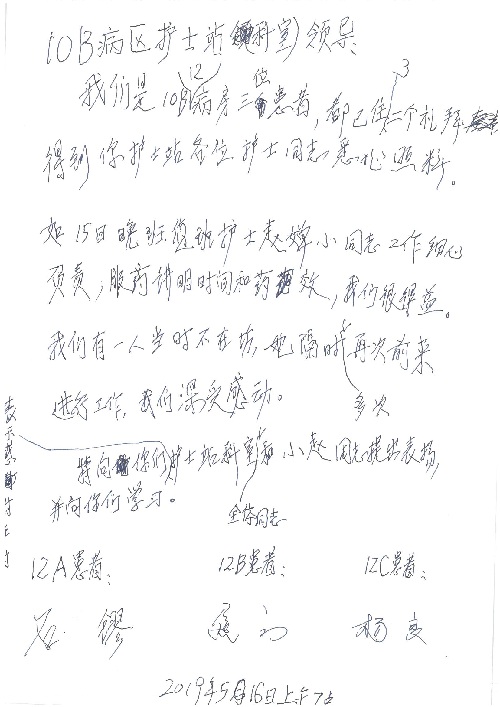 10B病区护士站(科室)领导:
我们是10B12病房三位患者,都已住二3个礼拜
得到你护士站各位护士同志悉心照料。
如15日晚班值班护士赵婵小同志工作细心
负责,服药讲明时间和药效,我们很得益。
我们有一人当时不在场,她隔时再次前来
多次
进行工作,我们深受感动。
特向你们护士站科室和小赵同志提出表扬,
表示感
并向你们学习。
全体同志
12A患者: 12B患者: 12C患者:
石 杨
2019年5月16日上午7点